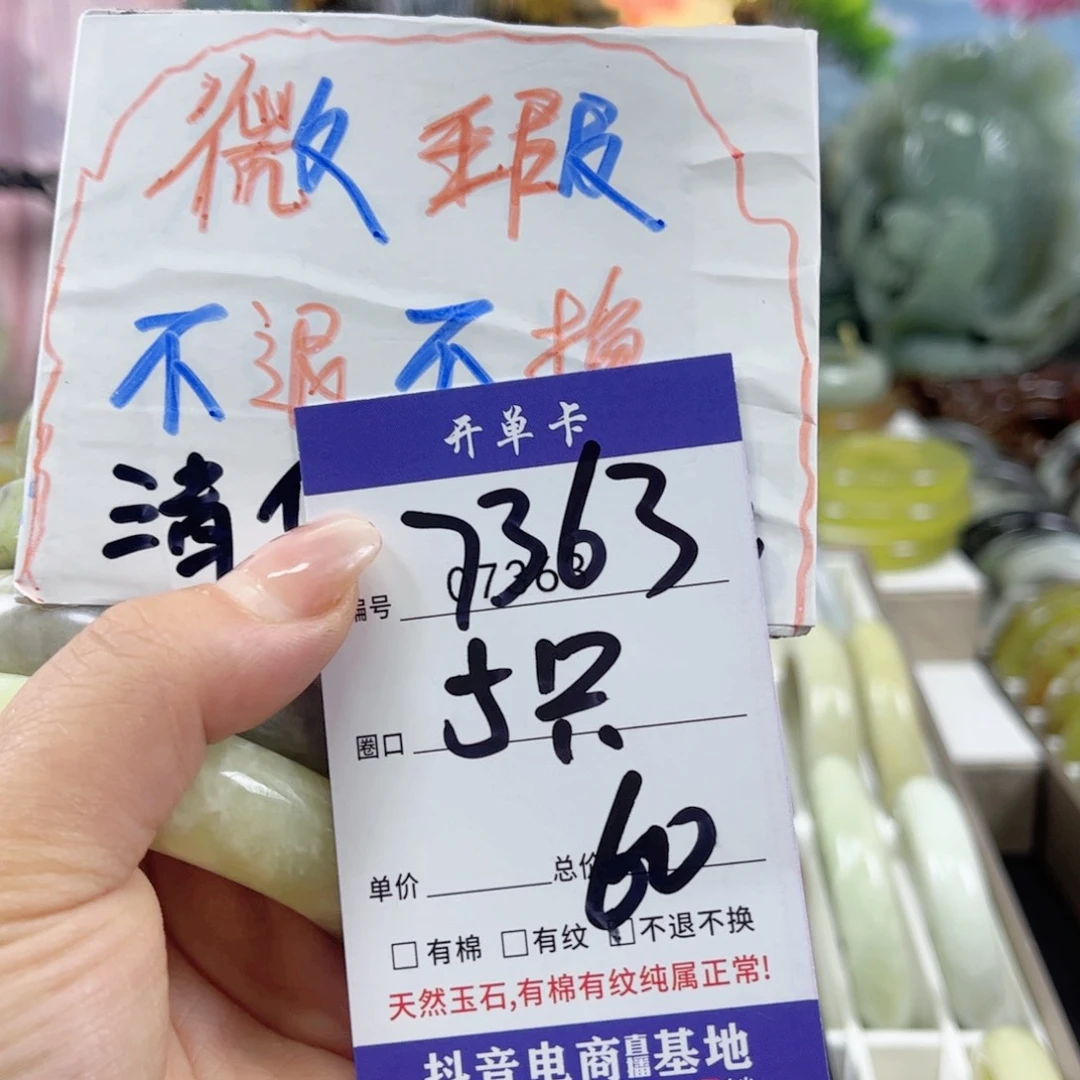 微瑕
不退不换
清
开单卡
7363
编号 07363
圈口
只
单价 总价 60
有棉 有纹 不退不换
天然玉石,有棉有纹纯属正常!
抖音电商直播基地